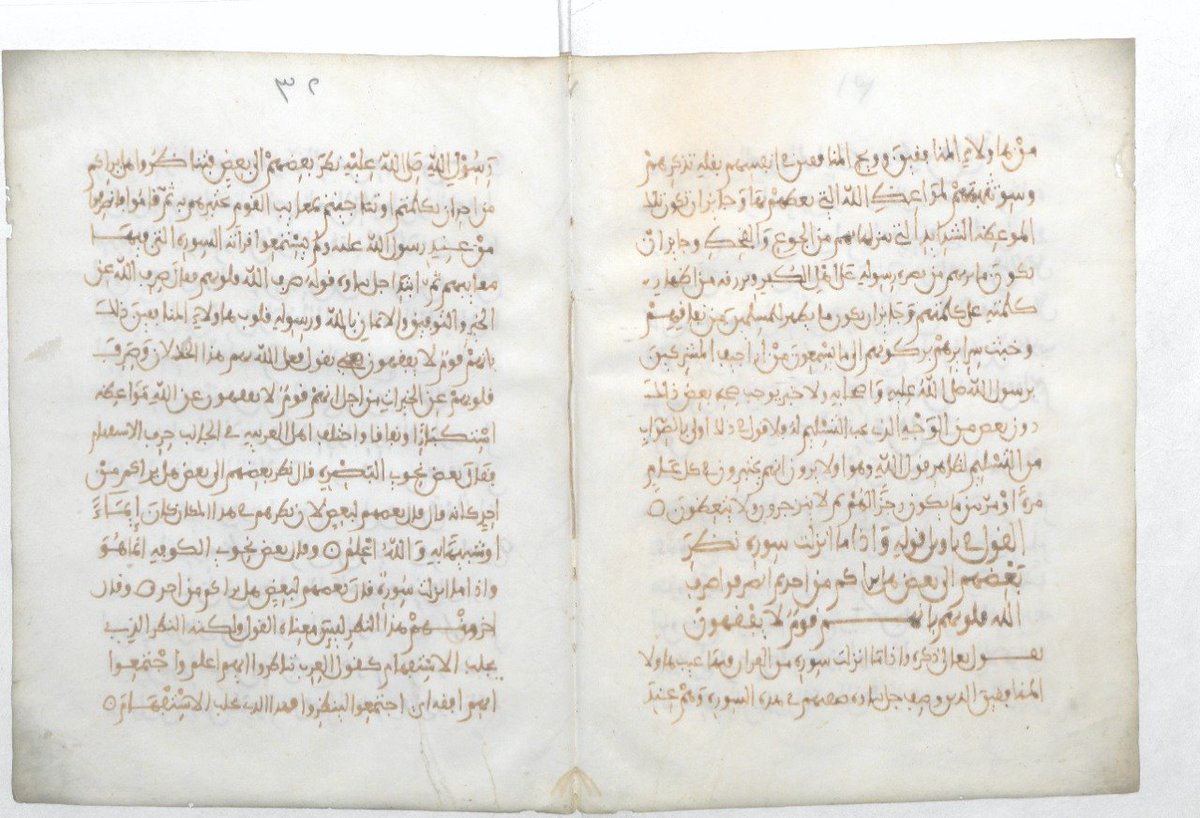 من هاولاء المنافقين ووبخ المنافقين في انفسهم بقلة تذكرهم
وسو تنبههم لمواعظ الله التي يعظهم بها وجايز ان تكون تلك
الموعظة الشدايد التي ينزلها بهم من الجوع والقحط وجايز ان
تكون ما يريهم من نصرة رسوله على اهل الكفر به ويرزقه من اظهار
كلمته على كلمتهم وجايز ان يكون ما يظهر للمسلمين من نفاقهم
وخبث سرايرهم بركونهم الى ما يسمعون من اراجيف المشركين
برسول الله صلى الله عليه واصحابه ولا خبر يوجب صحة بعض ذلك
دون بعض من الوجه الذي يجب التسليم له فلا قول في ذلك اولى بالصواب
من التسليم لظاهر قول الله وهو اولا يرون انهم يختبرون في كل عام
مرة او مرتين بما يكون زجرا لهم ثم لا ينزجرون ولا يتعظون
القول في تاويل قوله واذا ما انزلت سورة نظر
بعضهم الى بعض هل يراكم من احد ثم انصرفوا صرف
الله قلوبهم بانهم قوم لا يفقهون
يقول تعالى ذكره واذا ما انزلت سورة من القران فيها عيب هاولا
المنافقين الذين وصف جل ثناوه صفتهم في هذه السورة وهم عند
رسول الله صلى الله عليه نظر بعضهم الى بعض فتناظروا هل يراكم
من احد ان تكلمتم او تناجيتم بمعايب القوم يخبرهم به ثم قاموا فانصرفوا
من عند رسول الله عليه ولم يستمعوا قراة السورة التي فيها
معايبهم ثم ابتدا جل ثناوه قوله صرف الله قلوبهم فقال صرف الله عن
الخير والتوفيق والايمان بالله ورسوله قلوب هاولاء المنافقين ذلك
بانهم قوم لا يفقهون يقول فعل الله بهم هذا الخذلان وصرف
قلوبهم عن الخيرات من اجل انهم قوم لا يفقهون عن الله مواعظه
استكبارا ونفاقا واختلف اهل العربية في الجالب حرف الاستفهام
فقال بعض نحويي البصرة قال نظر بعضهم الى بعض هل يراكم من
احد كانه قال قال بعضهم لبعض لان نظرهم في هذا المكان كان ايماء
او شبيها به والله اعلم وقال بعض نحويي الكوفة انما هو
واذا ما انزلت سورة قال بعضهم لبعض هل يراكم من احد وقال
اخرون منهم هذا النظر ليس معناه القول ولكنه النظر الذي
يجلب الاستفهام كقول العرب تناظروا ايهم اعلم واجتمعوا
ايهم افقه اي اجتمعوا لينظروا فهذا الذي يجلب الاستفهام